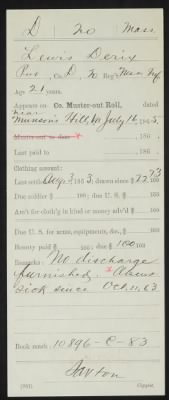 D 20 Mass.
Lewis Derix
Pvt., Co. D, 20 Reg't Mass. Inf.
Age 21 years.
Appears on Co. Muster-out Roll, dated
near Munson's Hill, Va July 16, 1865.
Muster-out to date 186 .
Last paid to 186 .
Clothing account:
Last settled Aug. 3, 1863; drawn since $ 77 73/100
Due soldier $ 100; due U. S. $ 100
Am't for cloth'g in kind or money adv'd $ 100
Due U. S. for arms, equipments, &c., $ 100
Bounty paid $ 100; due $ 100 100
Remarks: No discharge
furnished. Absent
sick since Oct. 11, 63
Book mark: 10896-C-83
(361) Copyist.